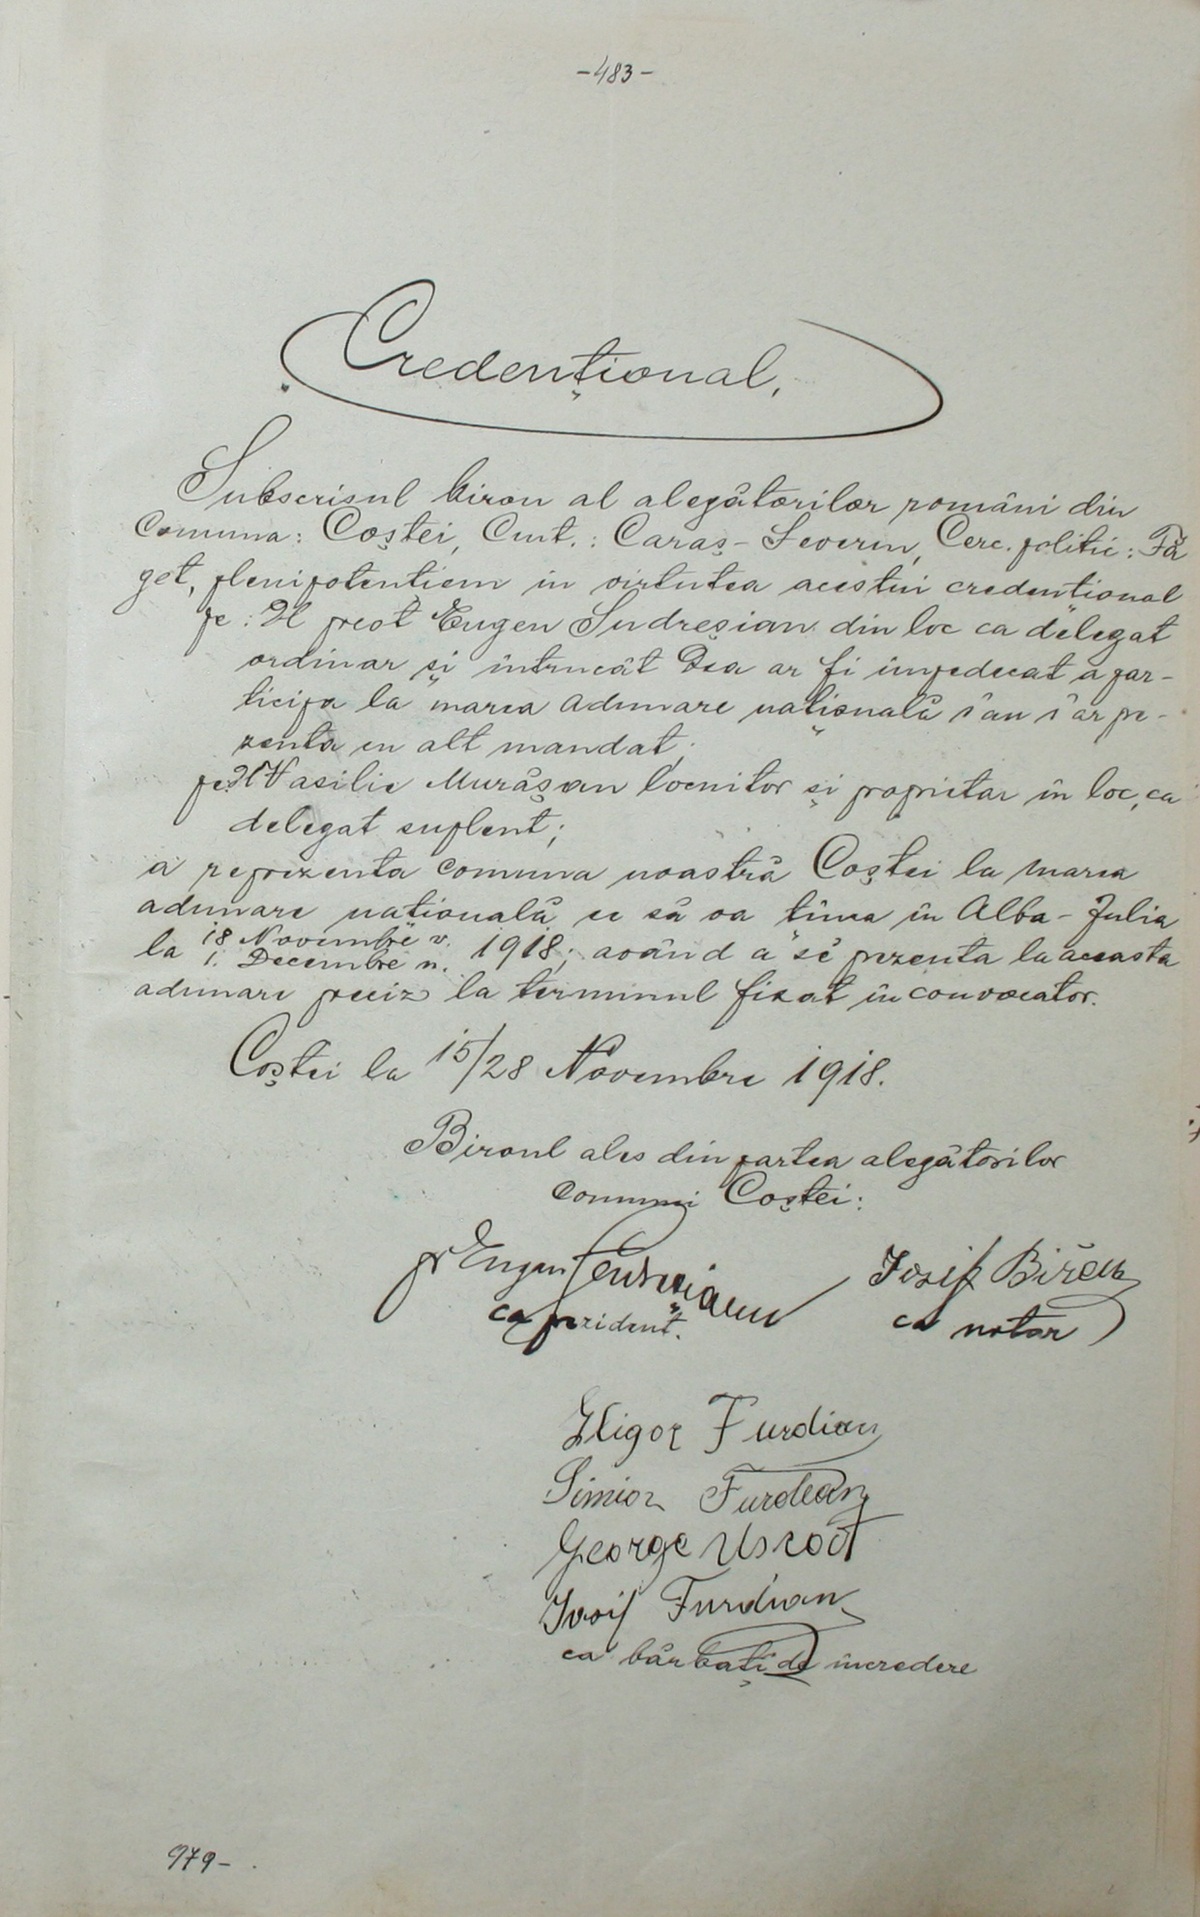 -483-
Credențional,
Subscrisul birou al alegătorilor români din
comuna: Coștei, Cmt.: Caraș-Severin, Cerc. politic: Fă
get, plenipotențiem in virtutea acestui credențional
pe: preot Eugen Sudreșian din loc ca delegat
ordinar și întrucât Dsa ar fi impedecat a par-
ticipa la marea adunare națională s'au s'ar pe-
zenta cu alt mandat;
pe Vasilie Murășan locuitor și proprietar in loc, ca
delegat suplent;
a reprezenta comuna noastră Coștei la marea
adunare națională ce să va tinea in Alba-Julia
la 18 Novembre v. 1. Decembre n. 1918; având a sĕ pezenta la aceasta
adunare preciz la terminul fixat in convocator.
Coștei la 15/28 Novembre 1918.
Biroul ales din partea alegătorilor
comunei Coștei:
pr Eugen Sudreșianu Iosif Birĕu
ca prezident. ca notar
Gligor Furdian
Simion Furdean
George Uscat
Iosif Furdian
ca bărbați de incredere
979-